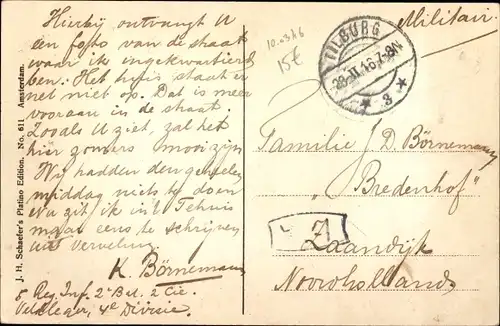 Hierbij ontvangt U
een foto van de straat
waar ik ingekwartierd
ben. Het huis staat er
net niet op. Dat is meer
vooraan in de straat.
Zooals U ziet, zal het
hier zomers mooi zijn
Wij hadden den geheelen
middag niets te doen
Nu zit ik in 't Tehuis
maar eens te schrijven
uit verveling.
K. Börnemann
Reg. Inf. 2e Bat. 2 Cie.
Veldleger, 4e Divisie
J. H. Schaefer's Platino Edition. No. 611 Amsterdam.
15€
TILBURG
3
Militair.
Familie J. D. Börnemann
"Bredenhof"
Zaandijk
Noordhollands